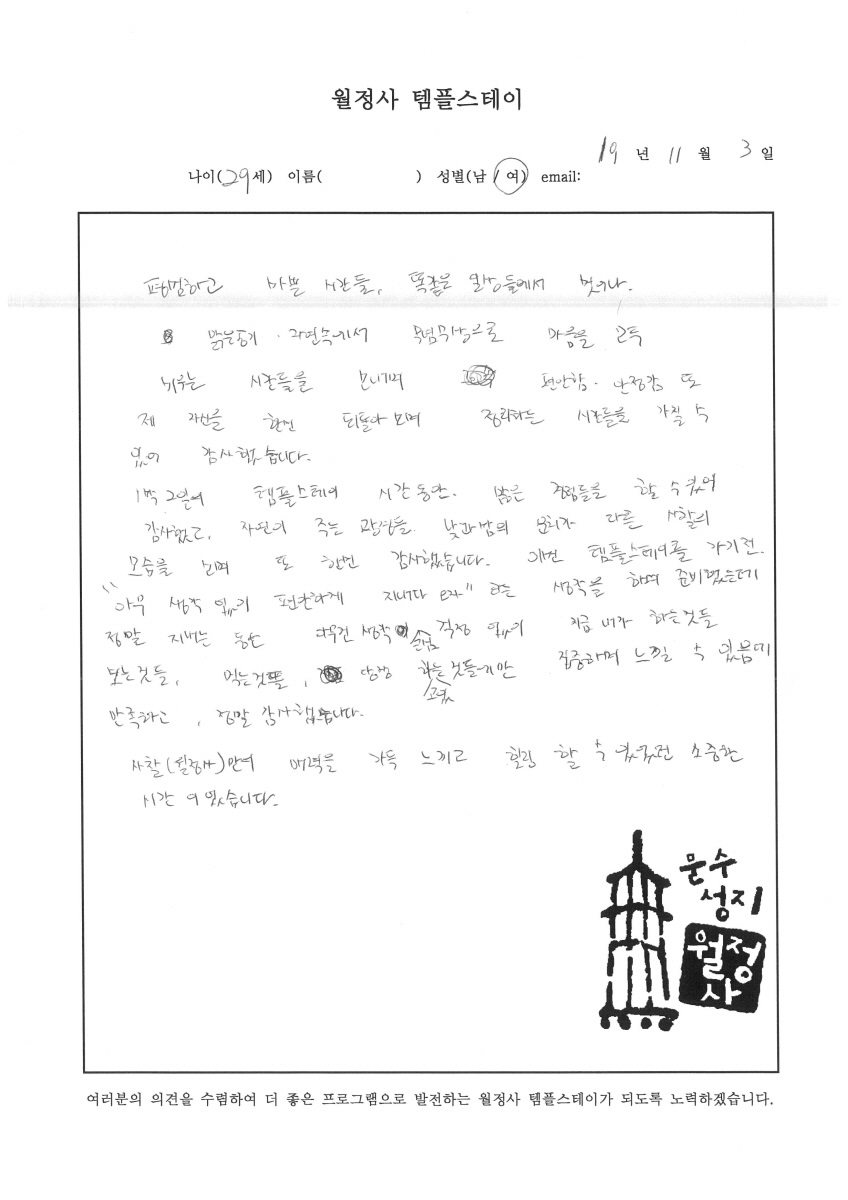 월정사 템플스테이
19 년 11 월 3 일
나이(29세) 이름( ) 성별(남 / 여) email:
평범하고 바쁜 시간들, 똑같은 일상들에서 벗어나.
맑은공기 · 자연속에서 무념무상으로 마음을
비우는 시간들을 보내며 편안함 · 안정감 또
제 자신을 한번 되돌아 보며 정리하는 시간들을 가질 수
있어 감사했습니다.
1박 2일에 템플스테이 시간동안. 많은 경험들을 할 수 있어
감사했고, 자연이 주는 광경들. 낮과밤의 다른 사찰의
모습을 보며 또 한번 감사했습니다. 이번 템플스테이를 가기전.
"아무 생각 없이 편안하게 지내다 오자" 라는 생각을 하며 준비했는데
정말 지내는 동안 생각 걱정 없이 지금 내가 하는것들
보는것들, 먹는것들, 당장 하는것들에만 집중하며 느낄 수 있음에
만족하고, 정말 감사했습니다.
사찰(월정사)만에 매력을 가득 느끼고 힐링 할 수 있었던 소중한
시간 이었습니다.
문수
성지
월정
사
여러분의 의견을 수렴하여 더 좋은 프로그램으로 발전하는 월정사 템플스테이가 되도록 노력하겠습니다.